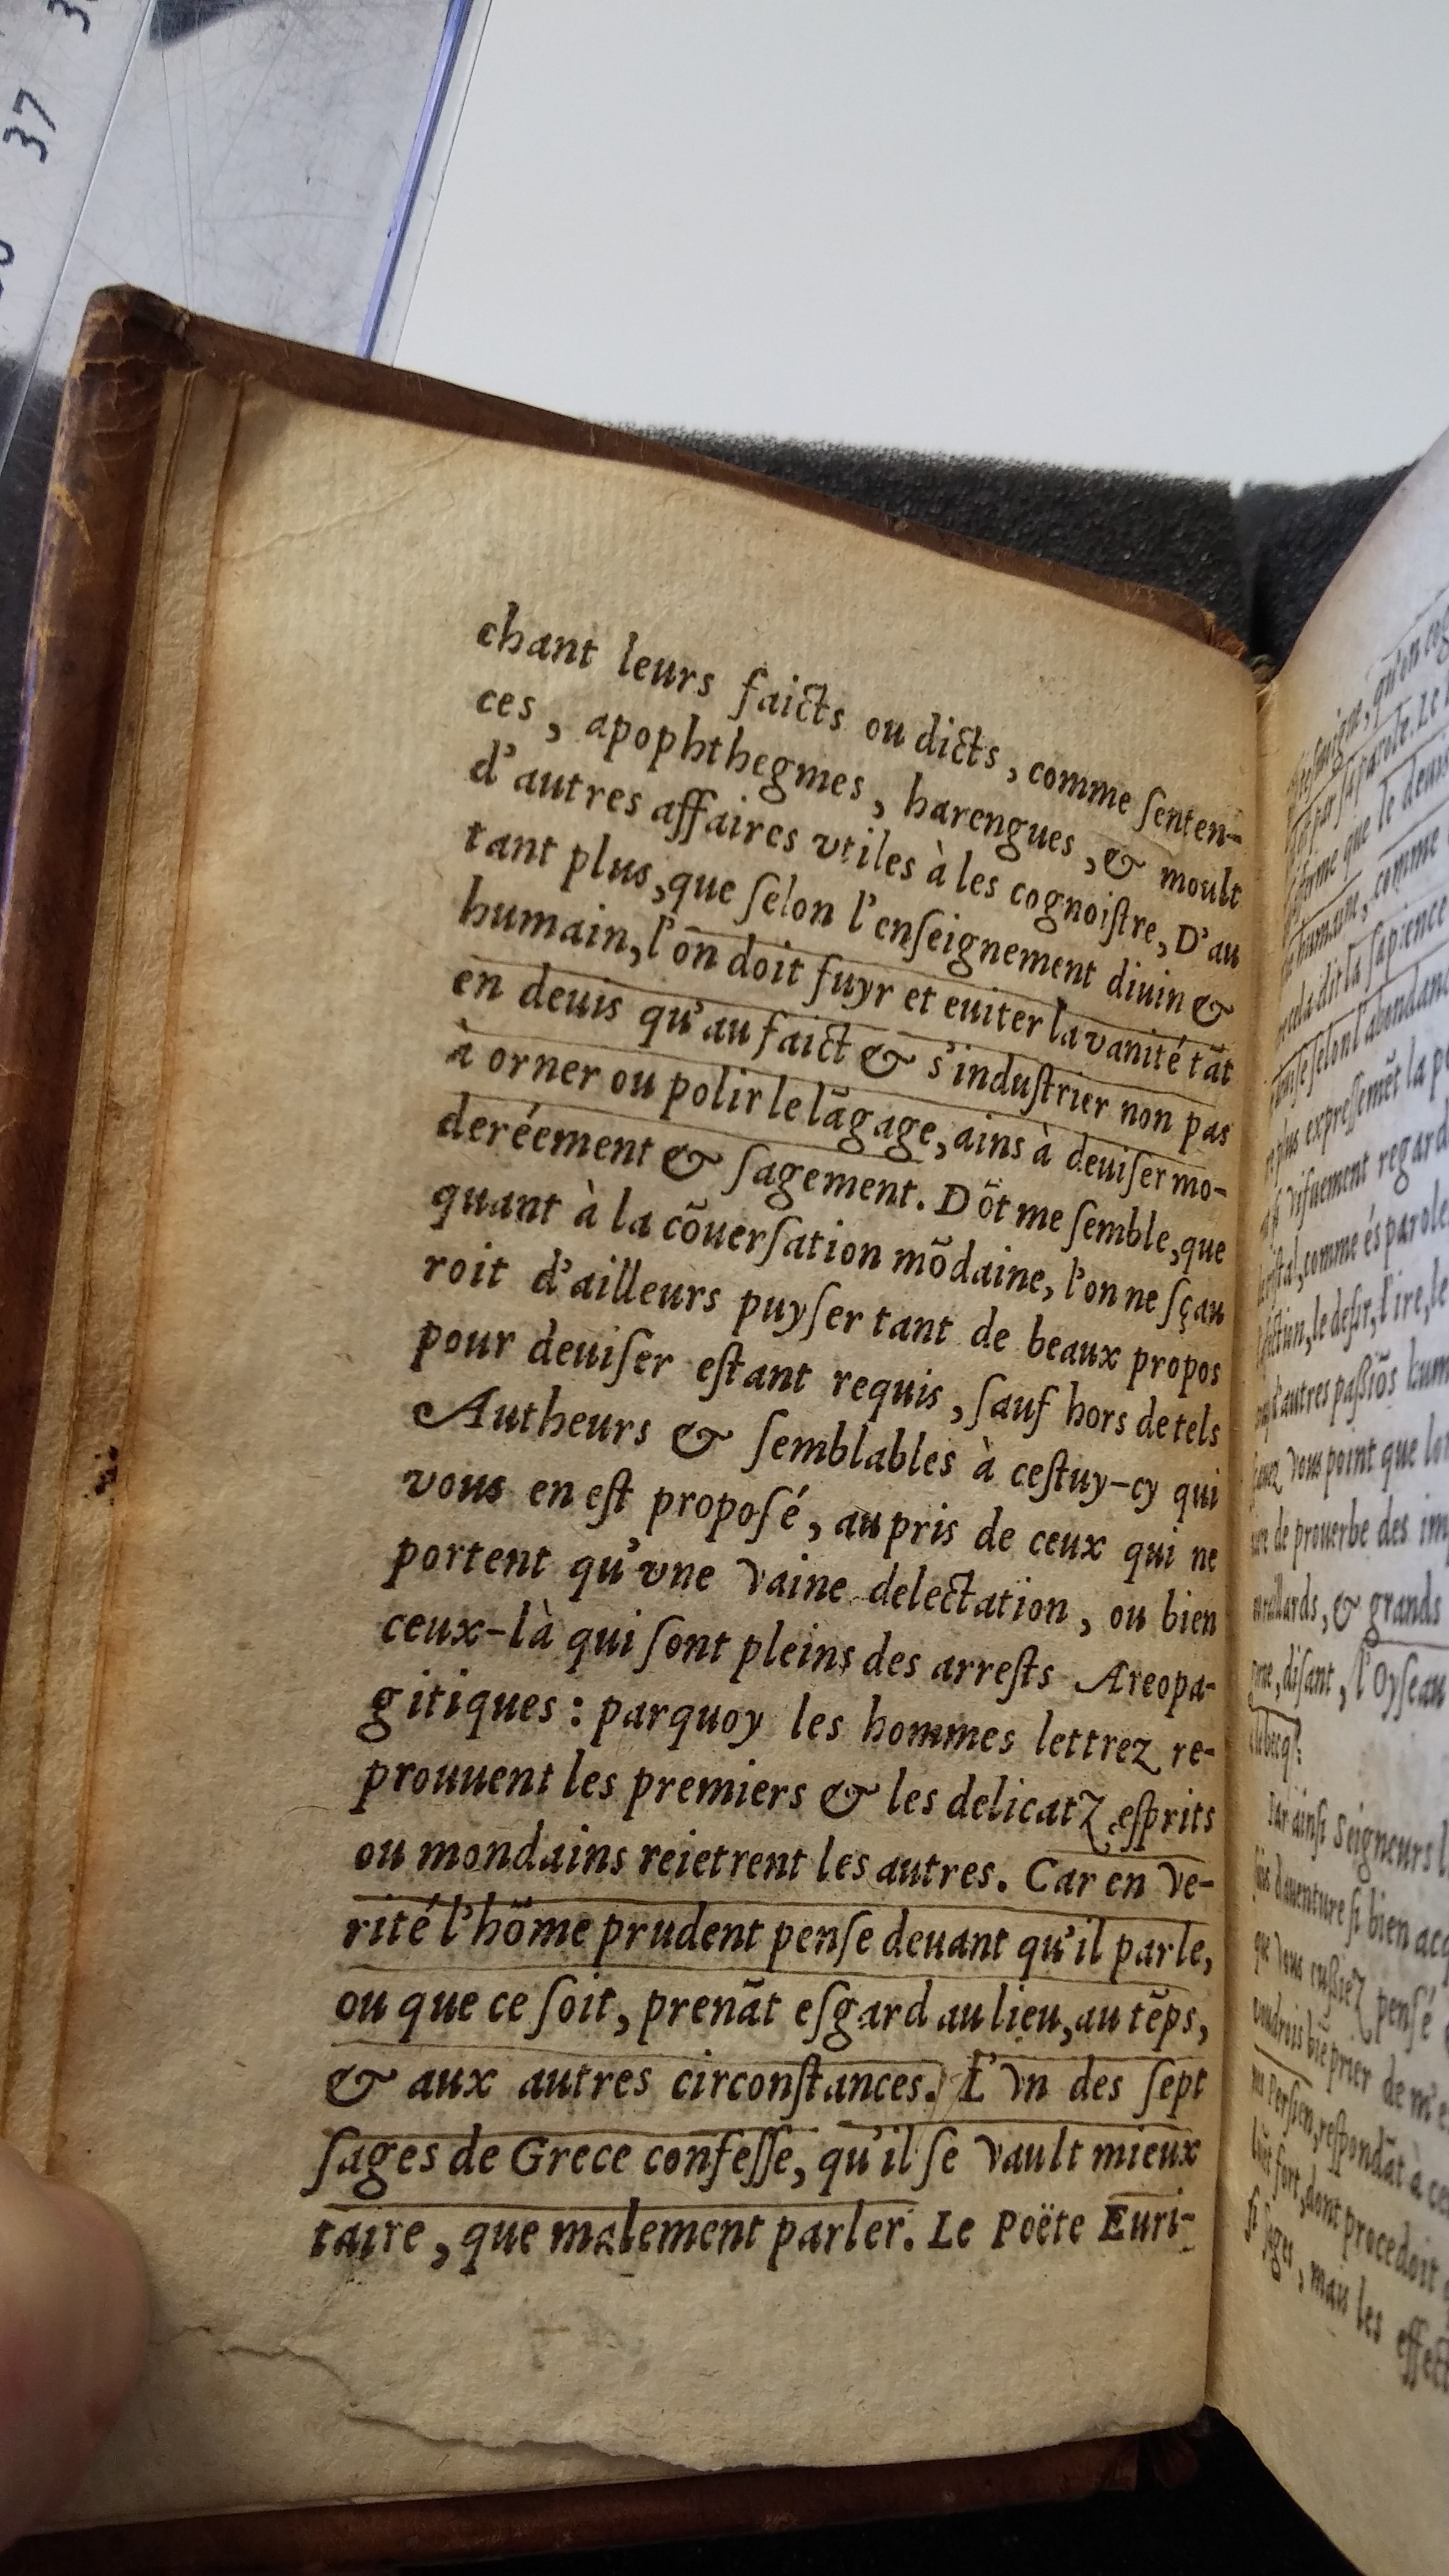 chant leurs faicts ou dicts, comme ſenten-
ces, apophthegmes, harengues, & moult
d'autres affaires vtiles à les cognoiſtre, D'au
tant plus, que ſelon l'enſeignement diuin &
humain, l'on doit fuyr et euiter la vanité tāt
en deuis qu'au faict & s'induſtrier non pas
à orner ou polir le lāgage, ains à deuiſer mo-
deréement & ſagement. Dōt me ſemble, que
quant à la cōuerſation mōdaine, l'on ne ſçau
roit d'ailleurs puyſer tant de beaux propos
pour deuiſer eſtant requis, ſauf hors de tels
Autheurs & ſemblables à ceſtuy-cy qui
vous en eſt propoſé, au pris de ceux qui ne
portent qu'vne vaine delectation, ou bien
ceux-là qui ſont pleins des arreſts Areopa-
gitiques : parquoy les hommes lettrez re-
prouuent les premiers & les delicatz eſprits
ou mondains reietrent les autres. Car en ve-
rité l'hōme prudent penſe deuant qu'il parle,
ou que ce ſoit, prenāt eſgard au lieu, au tēps,
& aux autres circonſtances. L'vn des ſept
ſages de Grece confeſſe, qu'il ſe vault mieux
taire, que malement parler. Le Poëte Euri-
37
la ſapience
plus expreſſemēt la
viſuement regard
comme és parole
le deſir, l'ire, le
d'autres paßiōs hum
vous point que
de prouerbe des im
& grands
diſant, l'Oyſeau
Par ainſi Seigneurs
d'auenture ſi bien
que vous eußiez penſé
voudrois biē prier de
Perſien, reſpondāt à
fort, dont procedoit
ſi ſages, mais les